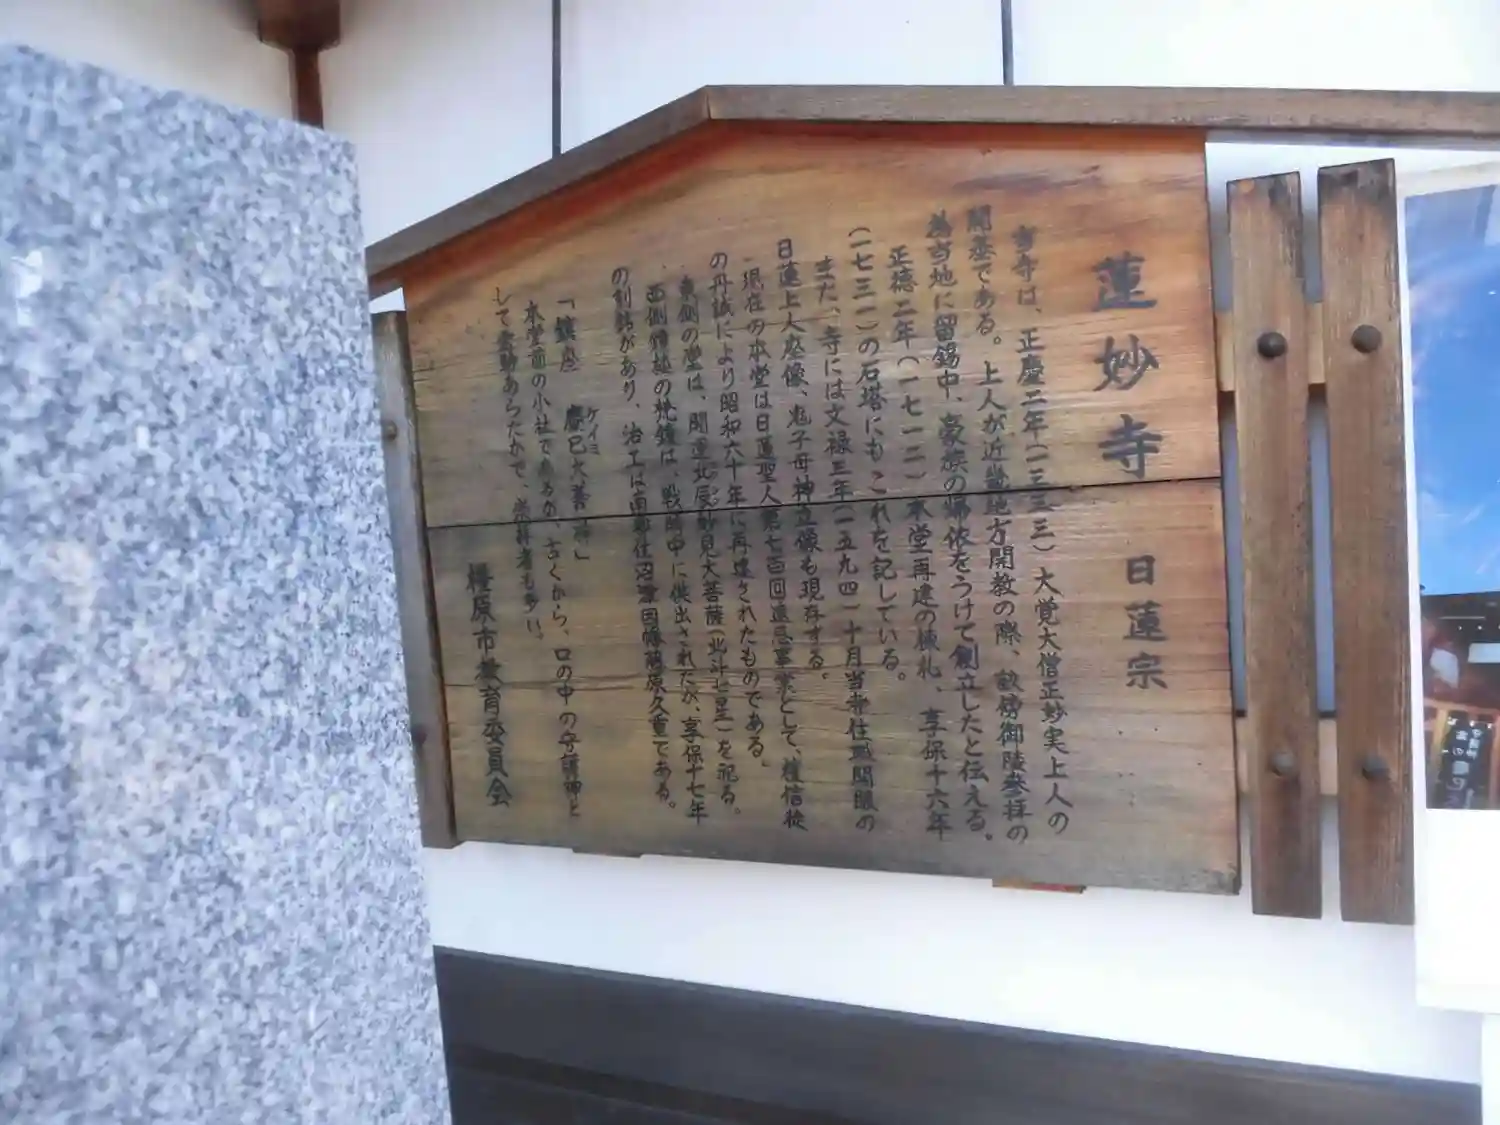 蓮妙寺 日蓮宗
当寺は、正慶二年(一三三三)大覚大僧正妙実上人の
開基である。上人が近畿地方開教の際、畝傍御陵参拝の
為当地に留錫中、豪族の帰依をうけて創立したと伝える。
正徳二年(一七一二)本堂再建の棟札、享保十六年
(一七三一)の石塔にもこれを記している。
また、寺には文禄三年(一五九四)十月当寺住職開眼の
日蓮上人座像、鬼子母神立像も現存する。
現在の本堂は日蓮聖人第七百回遠忌事業として、檀信徒
の丹誠により昭和六十年に再建されたものである。
東側の堂は、開運北辰妙見大菩薩(北斗七星)を祀る。
西側鐘楼の梵鐘は、戦時中に供出されたが、享保十七年
の刻銘があり、治工は南都住沼津因幡藤原久重である。
「鎮座 慶巳大善神」
ケイミ
本堂前の小社であるが、古くから、口の中の守護神と
して霊験あらたかで、崇拝者も多い。
橿原市教育委員会